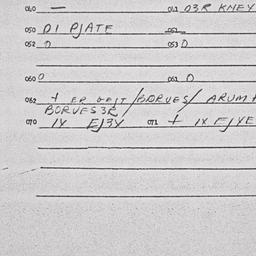 040 — 041 03R KNEY
050 D1 PJATE 051
052 0 053 0
060 0 061 0
062 + ER /BORVES/ ARUM
BORVES3R
070 1X EJ3Y 071 + 1X EJYE